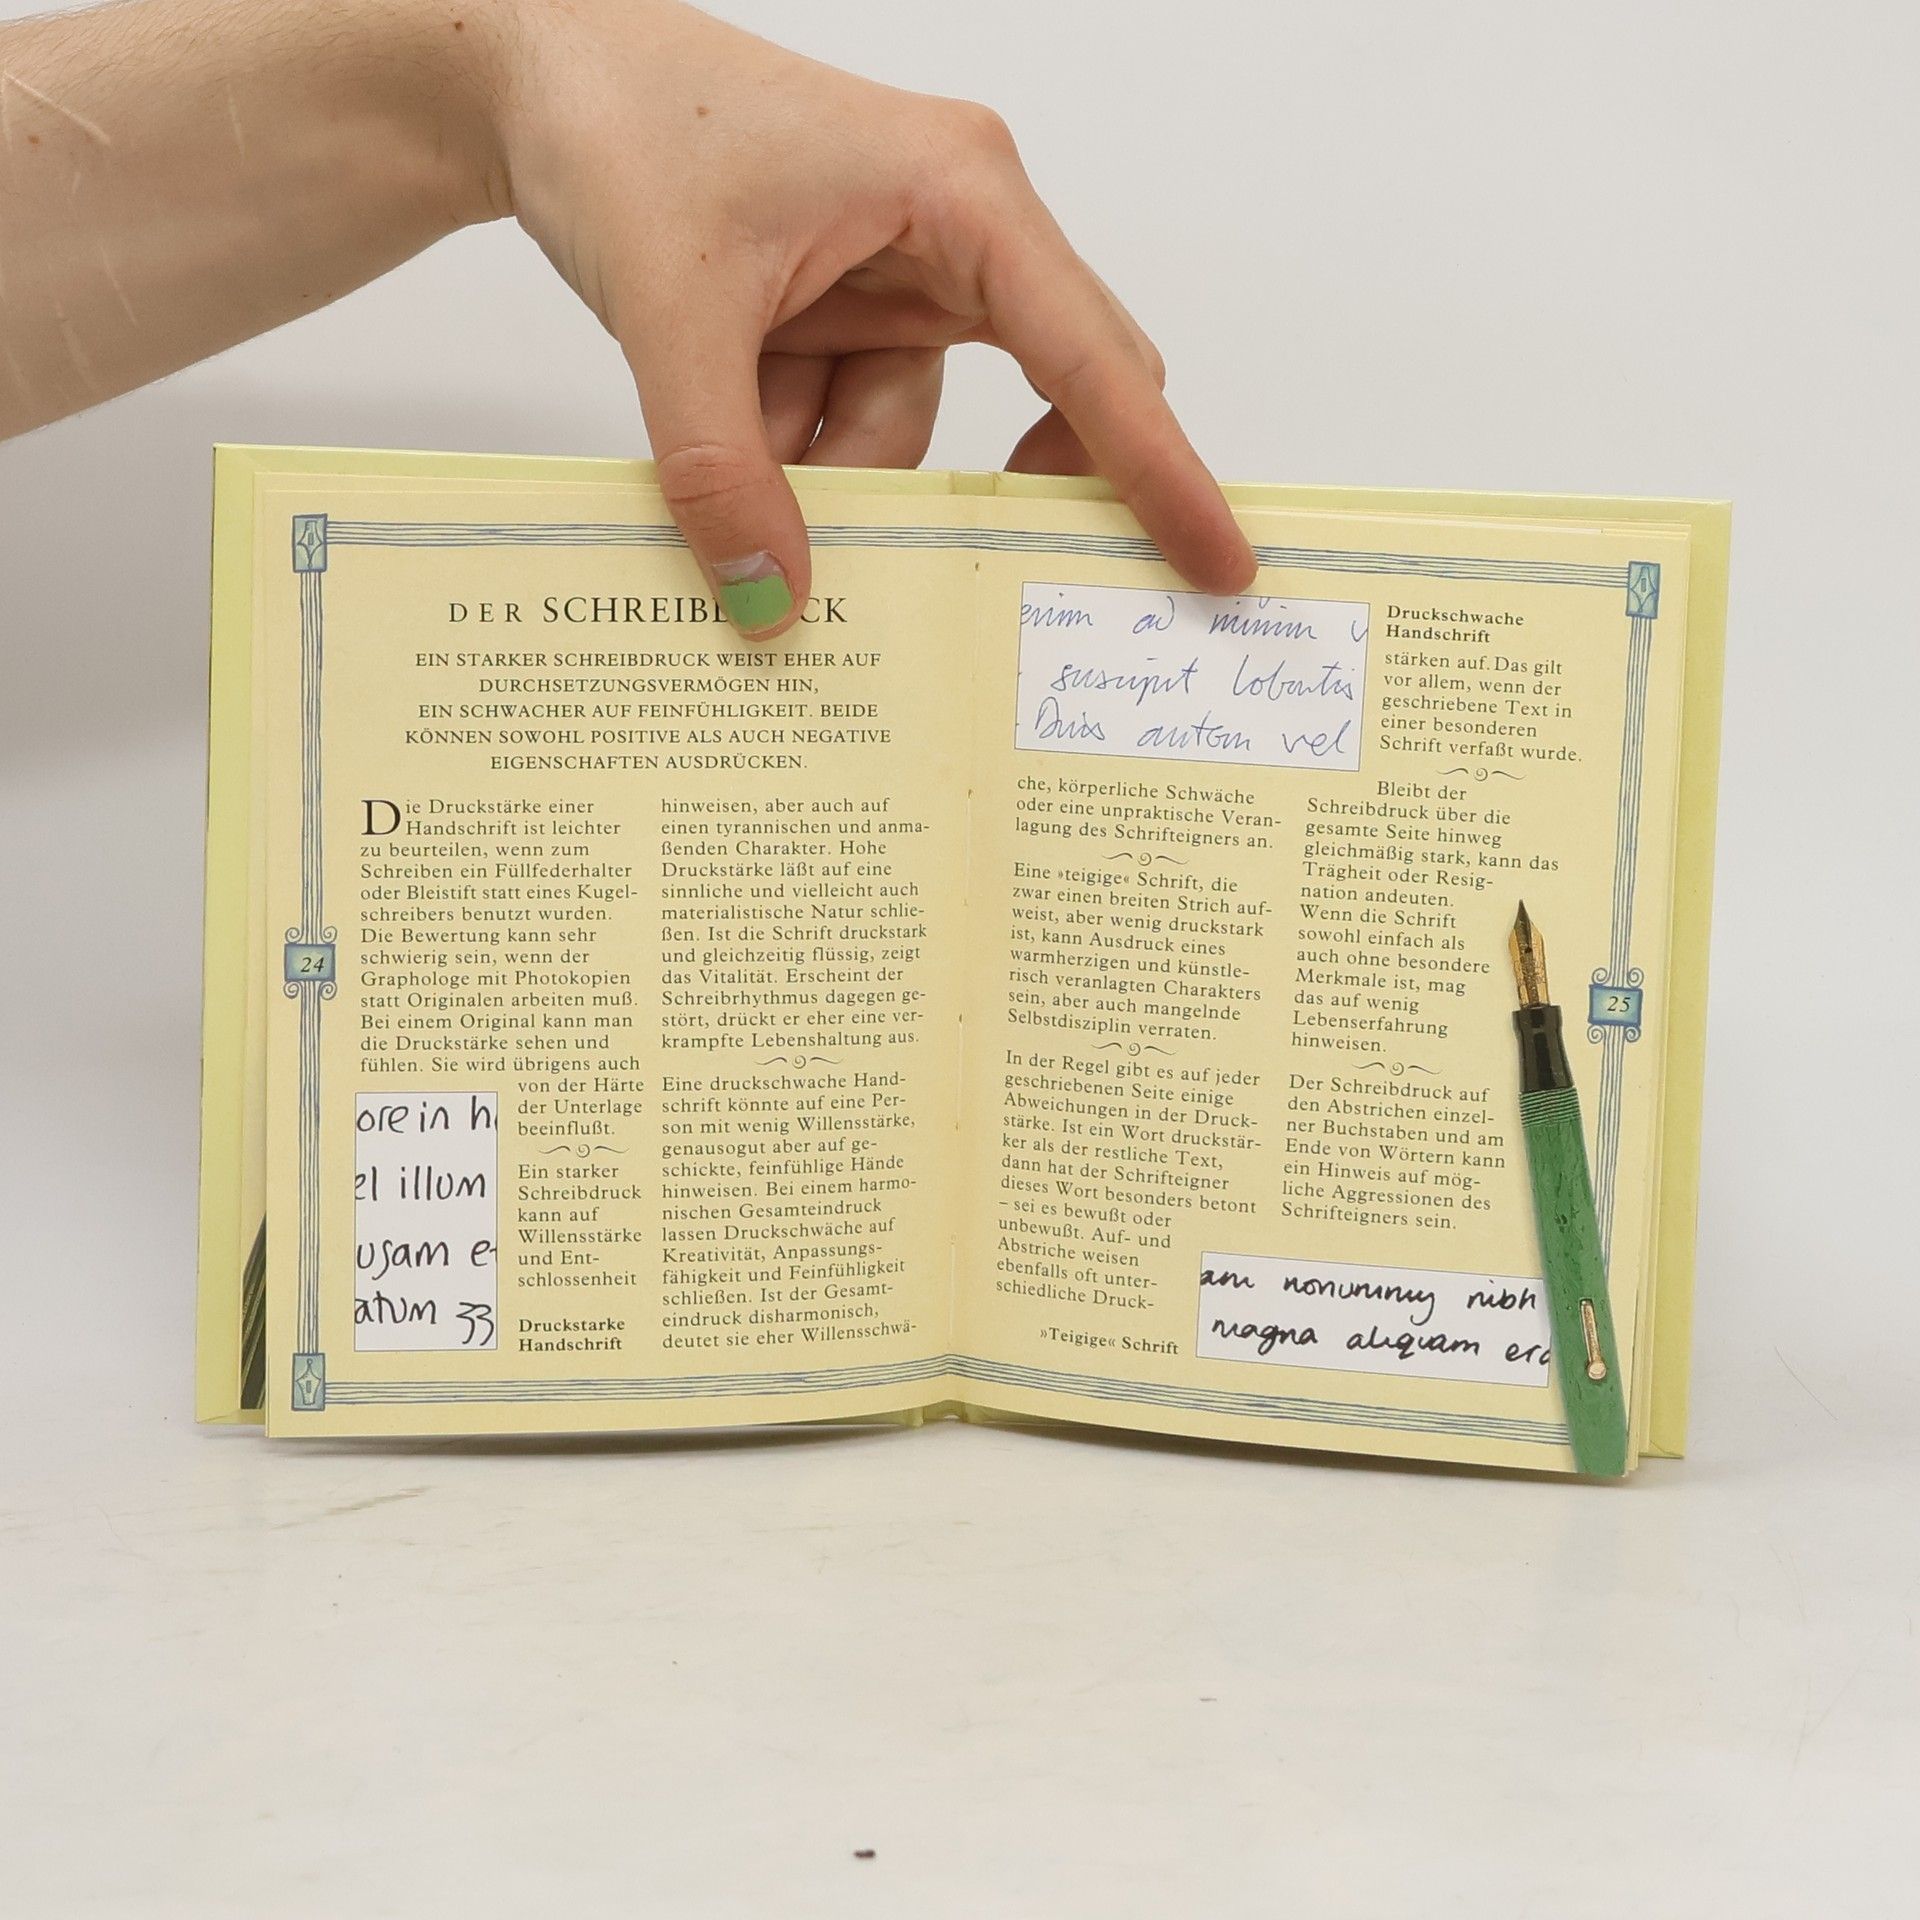 DER
EIN STARKER SCHREIBDRUCK WEIST EHER AUF
DURCHSETZUNGSVERMÖGEN HIN,
EIN SCHWACHER AUF FEINFÜHLIGKEIT. BEIDE
KÖNNEN SOWOHL POSITIVE ALS AUCH NEGATIVE
EIGENSCHAFTEN AUSDRÜCKEN.
Die Druckstärke einer
Handschrift ist leichter
zu beurteilen, wenn zum
Schreiben ein Füllfederhalter
oder Bleistift statt eines Kugel-
schreibers benutzt wurden.
Die Bewertung kann sehr
schwierig sein, wenn der
Graphologe mit Photokopien
statt Originalen arbeiten muß.
Bei einem Original kann man
die Druckstärke sehen und
fühlen. Sie wird übrigens auch
von der Härte
der Unterlage
beeinflußt.
Ein starker
Schreibdruck
kann auf
Willensstärke
und Ent-
schlossenheit
24
ore in h
el illum
usam et
atum zz
Druckstarke
Handschrift
hinweisen, aber auch auf
einen tyrannischen und anma-
ßenden Charakter. Hohe
Druckstärke läßt auf eine
sinnliche und vielleicht auch
materialistische Natur schlie-
ßen. Ist die Schrift druckstark
und gleichzeitig flüssig, zeigt
das Vitalität. Erscheint der
Schreibrhythmus dagegen ge-
stört, drückt er eher eine ver-
krampfte Lebenshaltung aus.
Eine druckschwache Hand-
schrift könnte auf eine Per-
son mit wenig Willensstärke,
genausogut aber auf ge-
schickte, feinfühlige Hände
hinweisen. Bei einem harmo-
nischen Gesamteindruck
lassen Druckschwäche auf
Kreativität, Anpassungs-
fähigkeit und Feinfühligkeit
schließen. Ist der Gesamt-
eindruck disharmonisch,
deutet sie eher Willensschwä-
enim ad minim v
suscipit lobortis
Duis autem vel
Druckschwache
Handschrift
che, körperliche Schwäche
oder eine unpraktische Veran-
lagung des Schrifteigners an.
Eine »teigige« Schrift, die
zwar einen breiten Strich auf-
weist, aber wenig druckstark
ist, kann Ausdruck eines
warmherzigen und künstle-
risch veranlagten Charakters
sein, aber auch mangelnde
Selbstdisziplin verraten.
In der Regel gibt es auf jeder
geschriebenen Seite einige
Abweichungen in der Druck-
stärke. Ist ein Wort druckstär-
ker als der restliche Text,
dann hat der Schrifteigner
dieses Wort besonders betont
– sei es bewußt oder
unbewußt. Auf- und
Abstriche weisen
ebenfalls oft unter-
schiedliche Druck-
»Teigige« Schrift
stärken auf. Das gilt
vor allem, wenn der
geschriebene Text in
einer besonderen
Schrift verfaßt wurde.
Bleibt der
Schreibdruck über die
gesamte Seite hinweg
gleichmäßig stark, kann das
Trägheit oder Resig-
nation andeuten.
Wenn die Schrift
sowohl einfach als
auch ohne besondere
Merkmale ist, mag
das auf wenig
Lebenserfahrung
hinweisen.
Der Schreibdruck auf
den Abstrichen einzel-
ner Buchstaben und am
Ende von Wörtern kann
ein Hinweis auf mög-
liche Aggressionen des
Schrifteigners sein.
am nonummy nibh
magna aliquam era
25